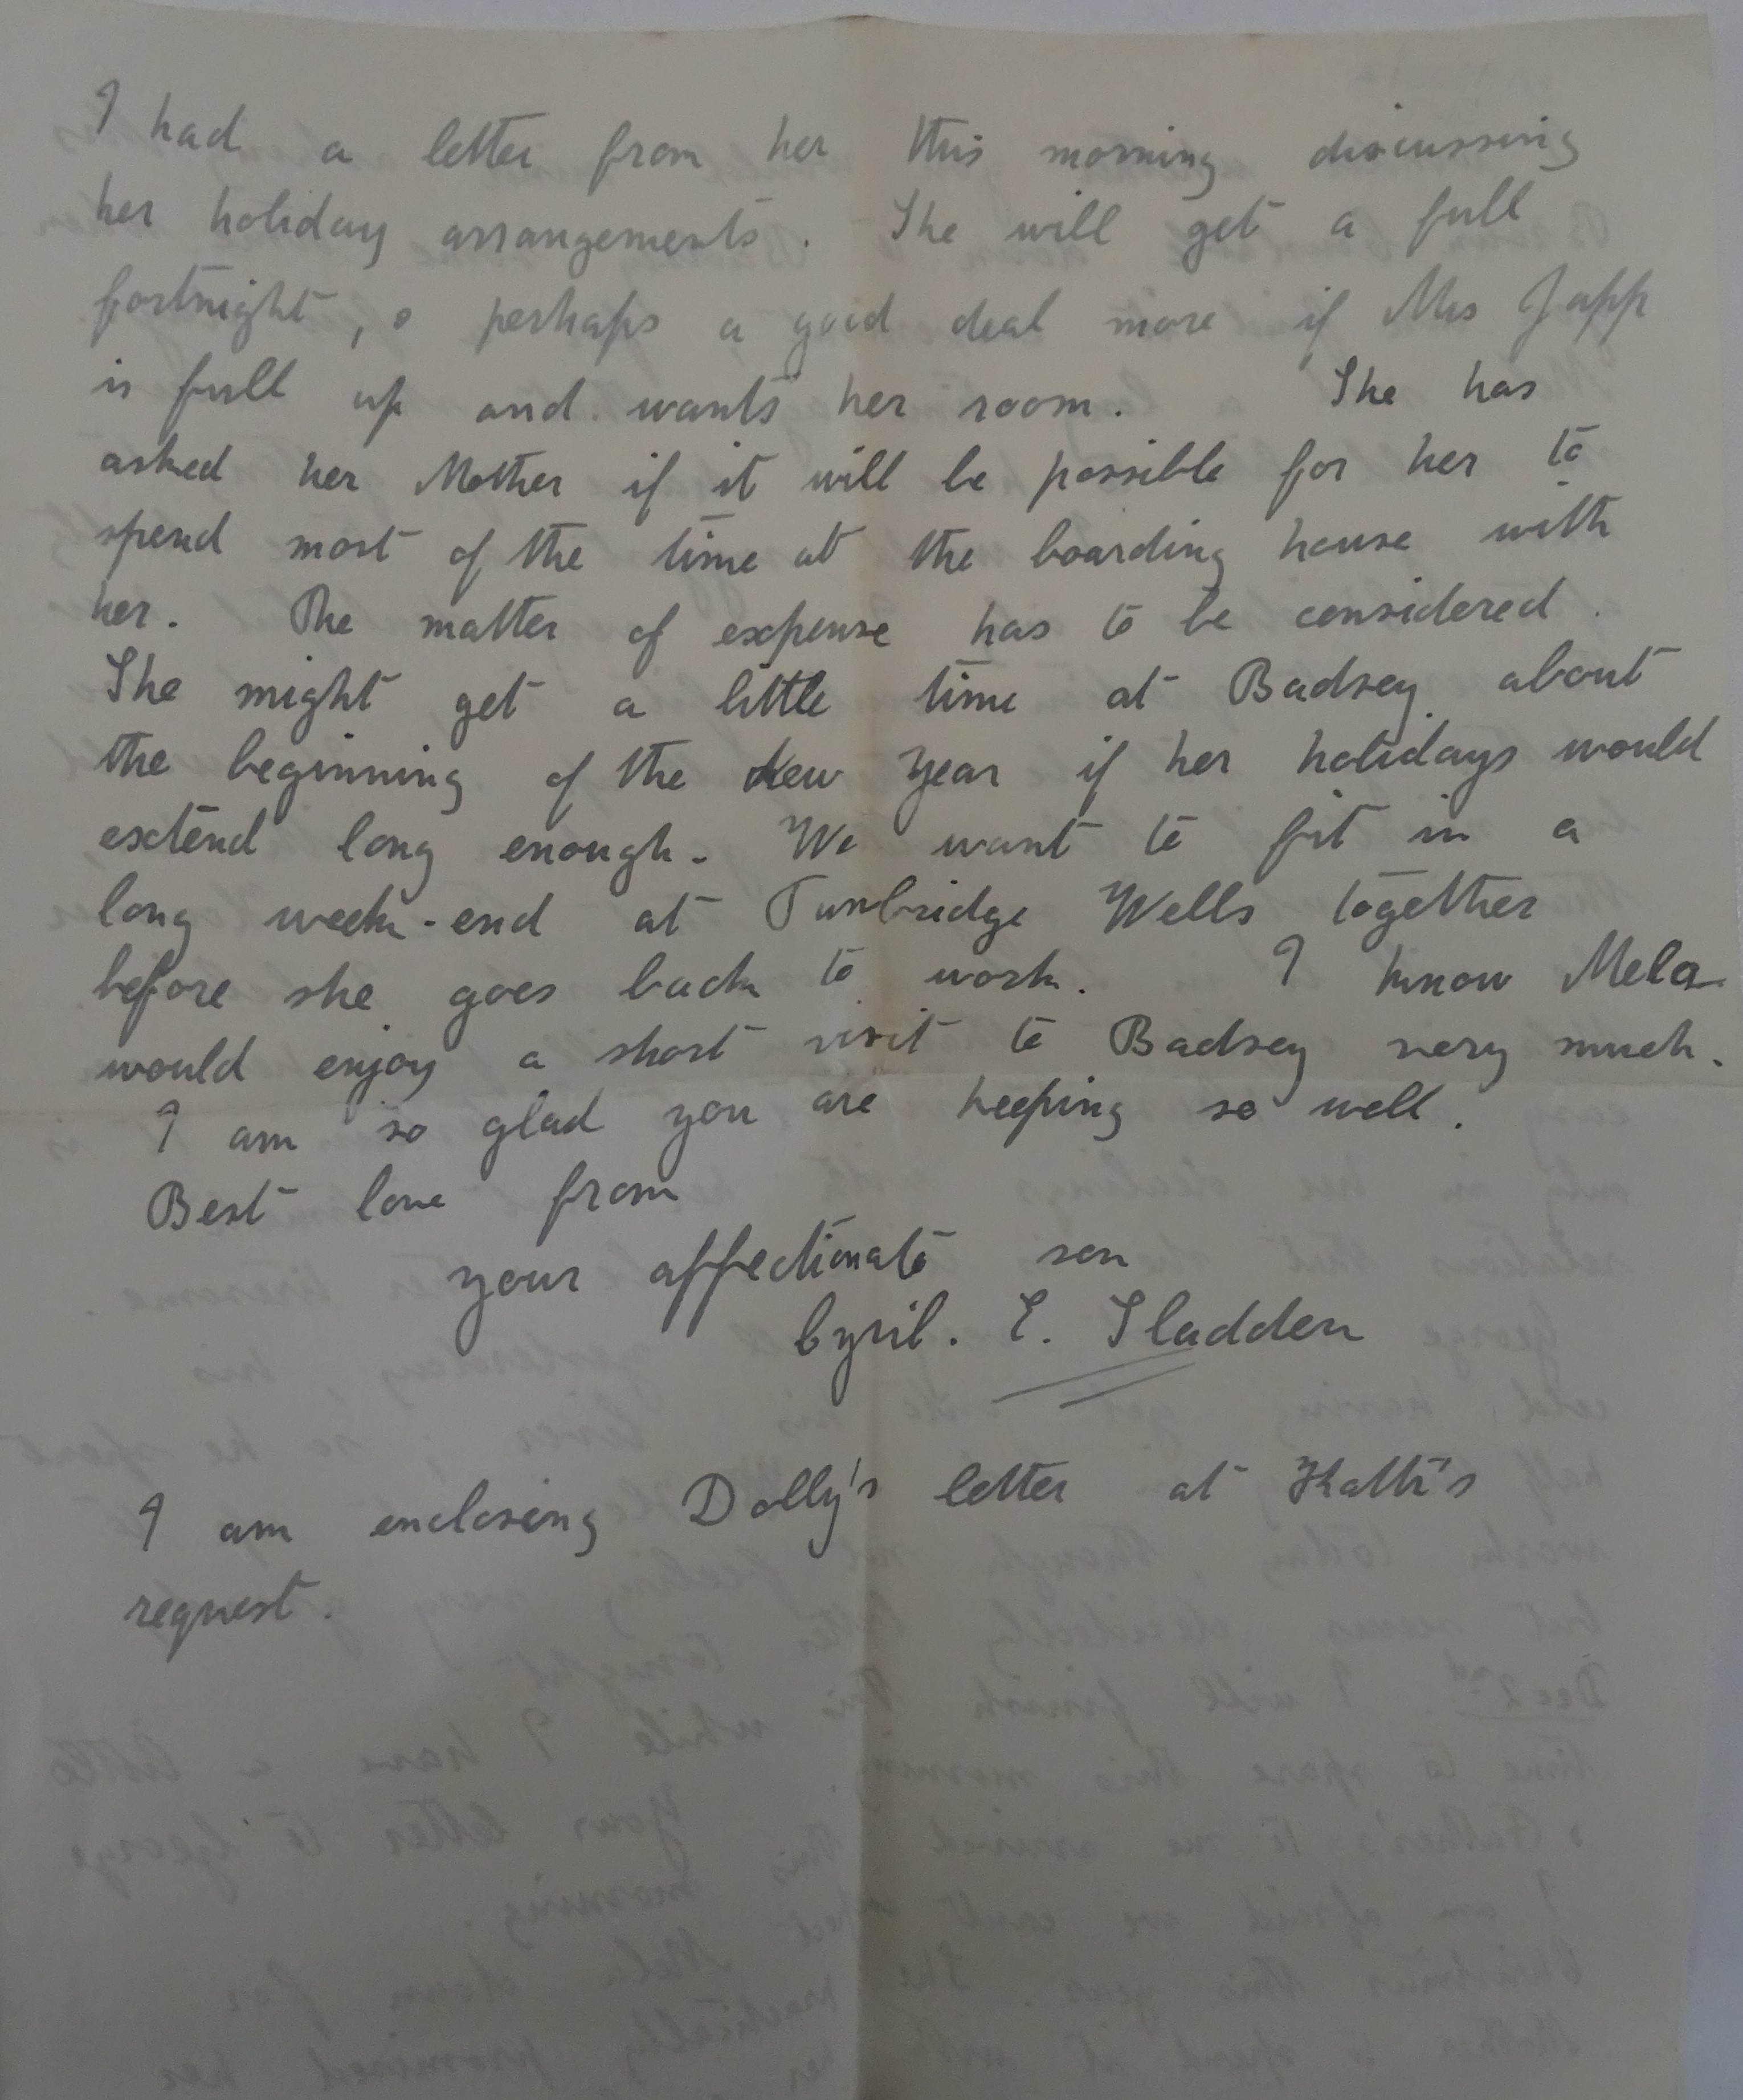 I had a letter from her this morning discussing
her holiday arrangements. She will get a full
fortnight, & perhaps a good deal more if Mrs Japp
is full up and wants her room. She has
asked her Mother if it will be possible for her to
spend most of the time at the boarding house with
her. The matter of expense has to be considered.
She might get a little time at Badsey about
the beginning of the New Year if her holidays would
extend long enough. We want to fit in a
long week-end at Tunbridge Wells together
before she goes back to work. I know Mela
would enjoy a short visit to Badsey very much.
I am so glad you are keeping so well.
Best love from
your affectionate son
Cyril. E. Sladden
I am enclosing Dolly's letter at
request.